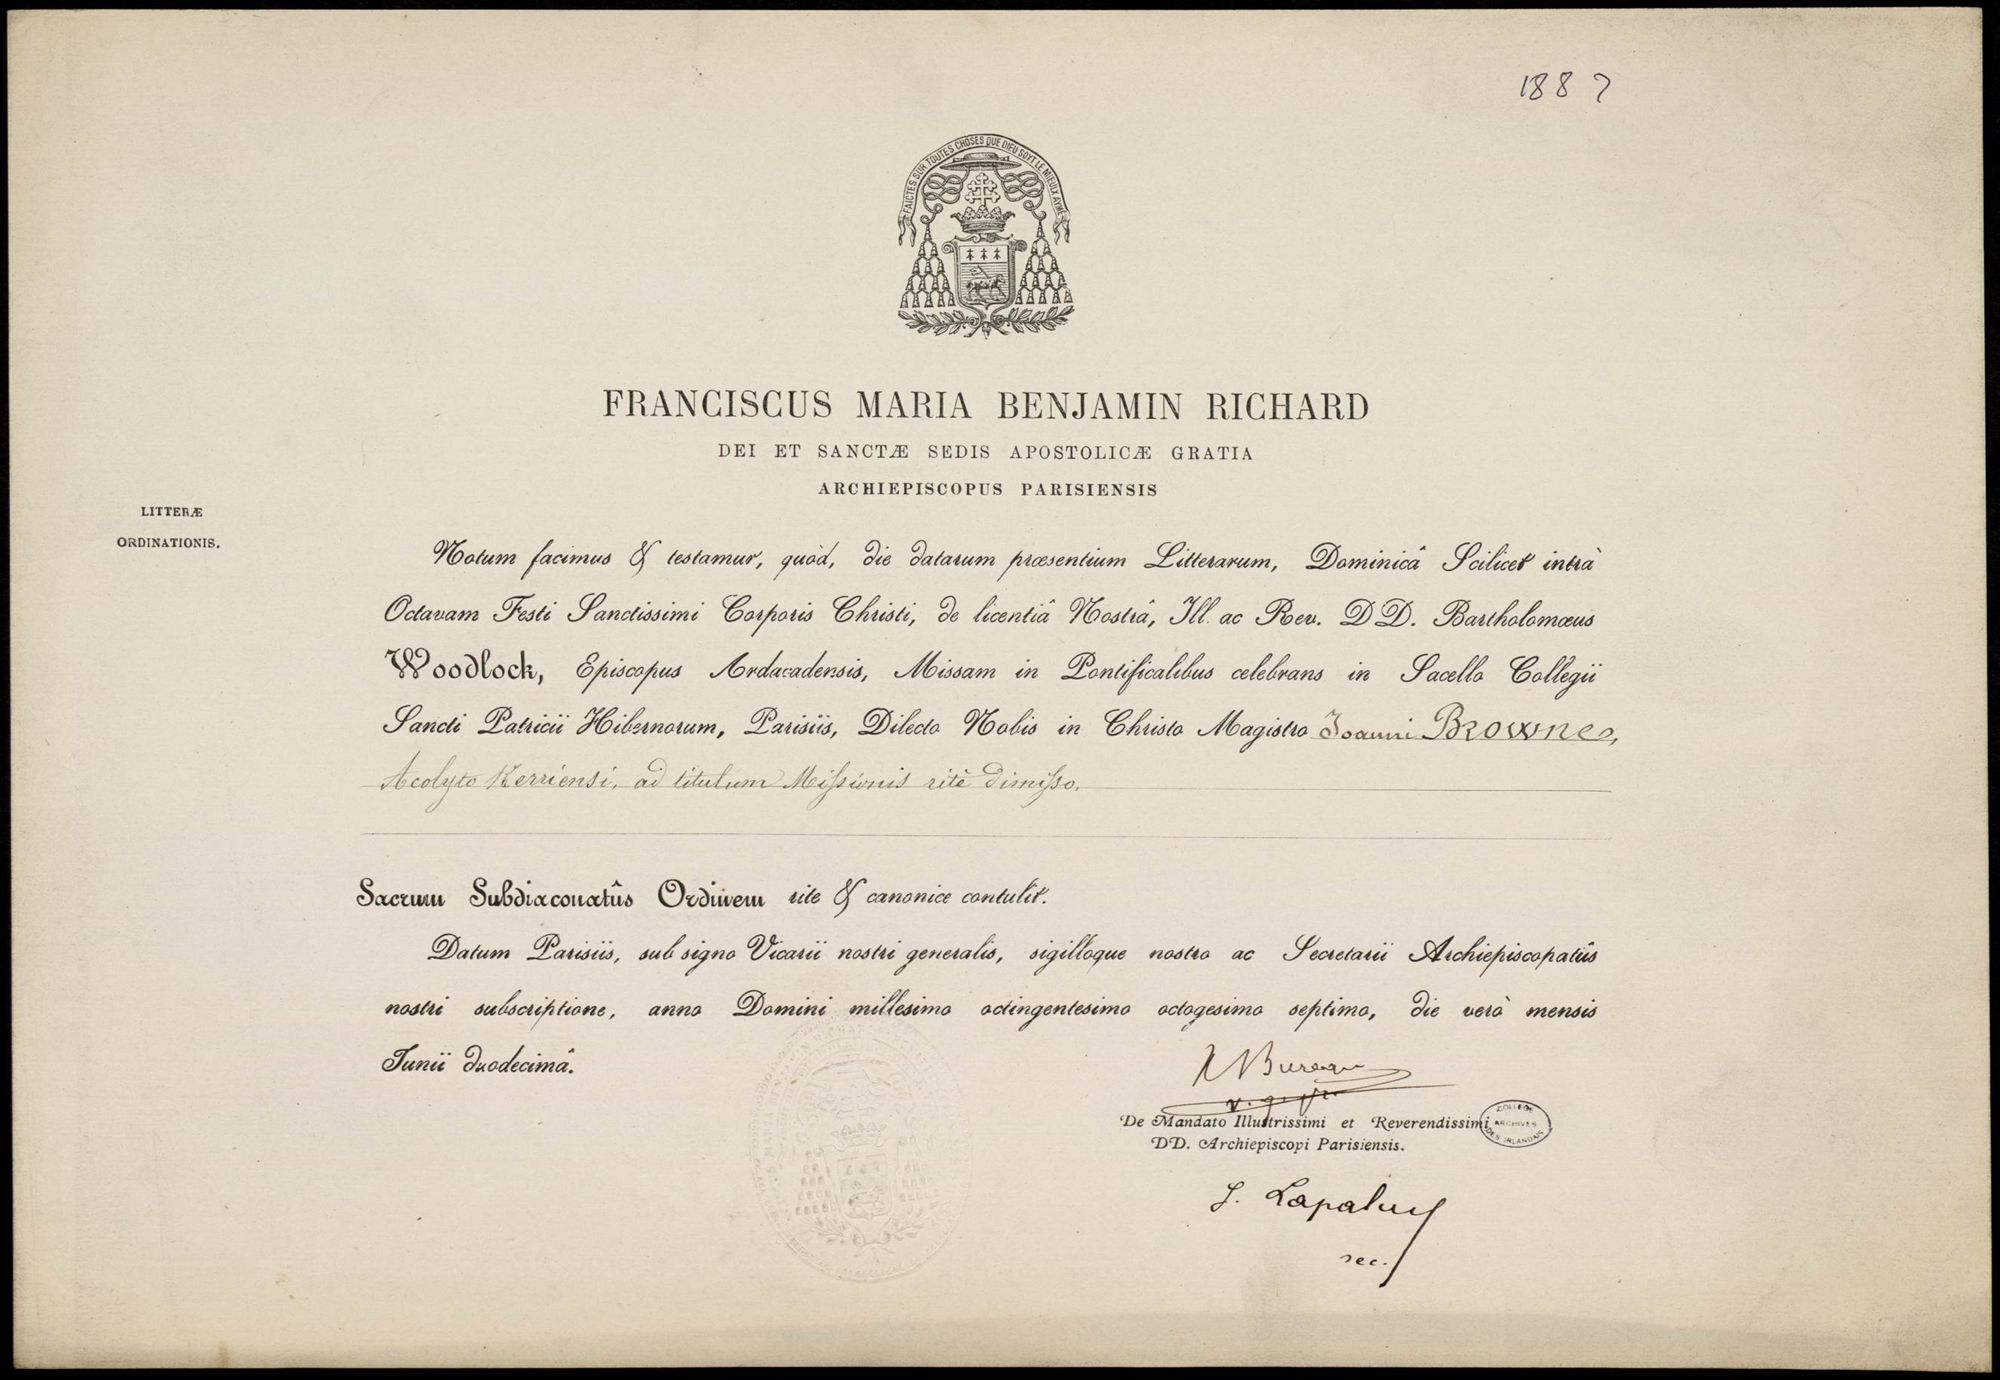 1887
FAICTES SUR TOUTES CHOSES QUE DIEU SOYT LE MIEULX AYMÉ
FRANCISCUS MARIA BENJAMIN RICHARD
DEI ET SANCTÆ SEDIS APOSTOLICÆ GRATIA
ARCHIEPISCOPUS PARISIENSIS
LITTERÆ
ORDINATIONIS.
Notum facimus & testamur, quòd, die datarum præsentium Litterarum, Dominicâ Scilicet intrà
Octavam Festi Sanctissimi Corporis Christi, de licentiâ Nostrâ, Ill. ac Rev. DD. Bartholomœus
Woodlock, Episcopus Ardacadensis, Missam in Pontificalibus celebrans in Sacello Collegii
Sancti Patricii Hibernorum, Parisiis, Dilecto Nobis in Christo Magistro Joanni Browne,
Acolyto Kerriensi, ad titulum Missionis ritè dimisso.
Sacrum Subdiaconatûs Ordinem rite & canonice contulit.
Datum Parisiis, sub signo Vicarii nostri generalis, sigilloque nostro ac Secretarii Archiepiscopatûs
nostri subscriptione, anno Domini millesimo octingentesimo octogesimo septimo, die verò mensis
Junii duodecimâ.
Bureau
De Mandato Illustrissimi et Reverendissimi
DD. Archiepiscopi Parisiensis.
COLLEGE
ARCHIVES
DES IRLANDAIS
sec.